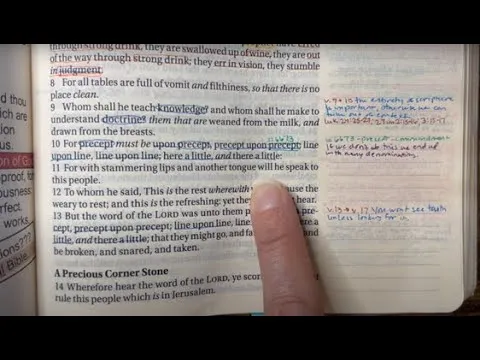 through strong drink, they are swallowed up of wine, they are out
of the way through strong drink; they err in vision, they stumble
in judgment.
8 For all tables are full of vomit and filthiness, so that there is no
place clean.
9 Whom shall he teach knowledge? and whom shall he make to
understand doctrine? them that are weaned from the milk, and
drawn from the breasts.
10 For precept must be upon precept, precept upon precept; line
upon line, line upon line; here a little, and there a little:
11 For with stammering lips and another tongue will he speak to
this people.
12 To whom he said, This is the rest wherewith use the
weary to rest; and this is the refreshing: yet they hear.
13 But the word of the LORD was unto them p pre-
cept, precept upon precept; line upon line, line
little, and there a little; that they might go, and fa and
be broken, and snared, and taken.
A Precious Corner Stone
14 Wherefore hear the word of the LORD, ye scor
rule this people which is in Jerusalem.
thou
which are
tion
ous.
on of Go
proof, for
ousness:
erfect,
works.
ions???
l Bible.
v. 9+10 the entirety of scripture
is important, otherwise we can
precept = commandment
if we don't do this we end up
with many denominations.
v.13 + v.12 You won't see truth
unless looking for it.